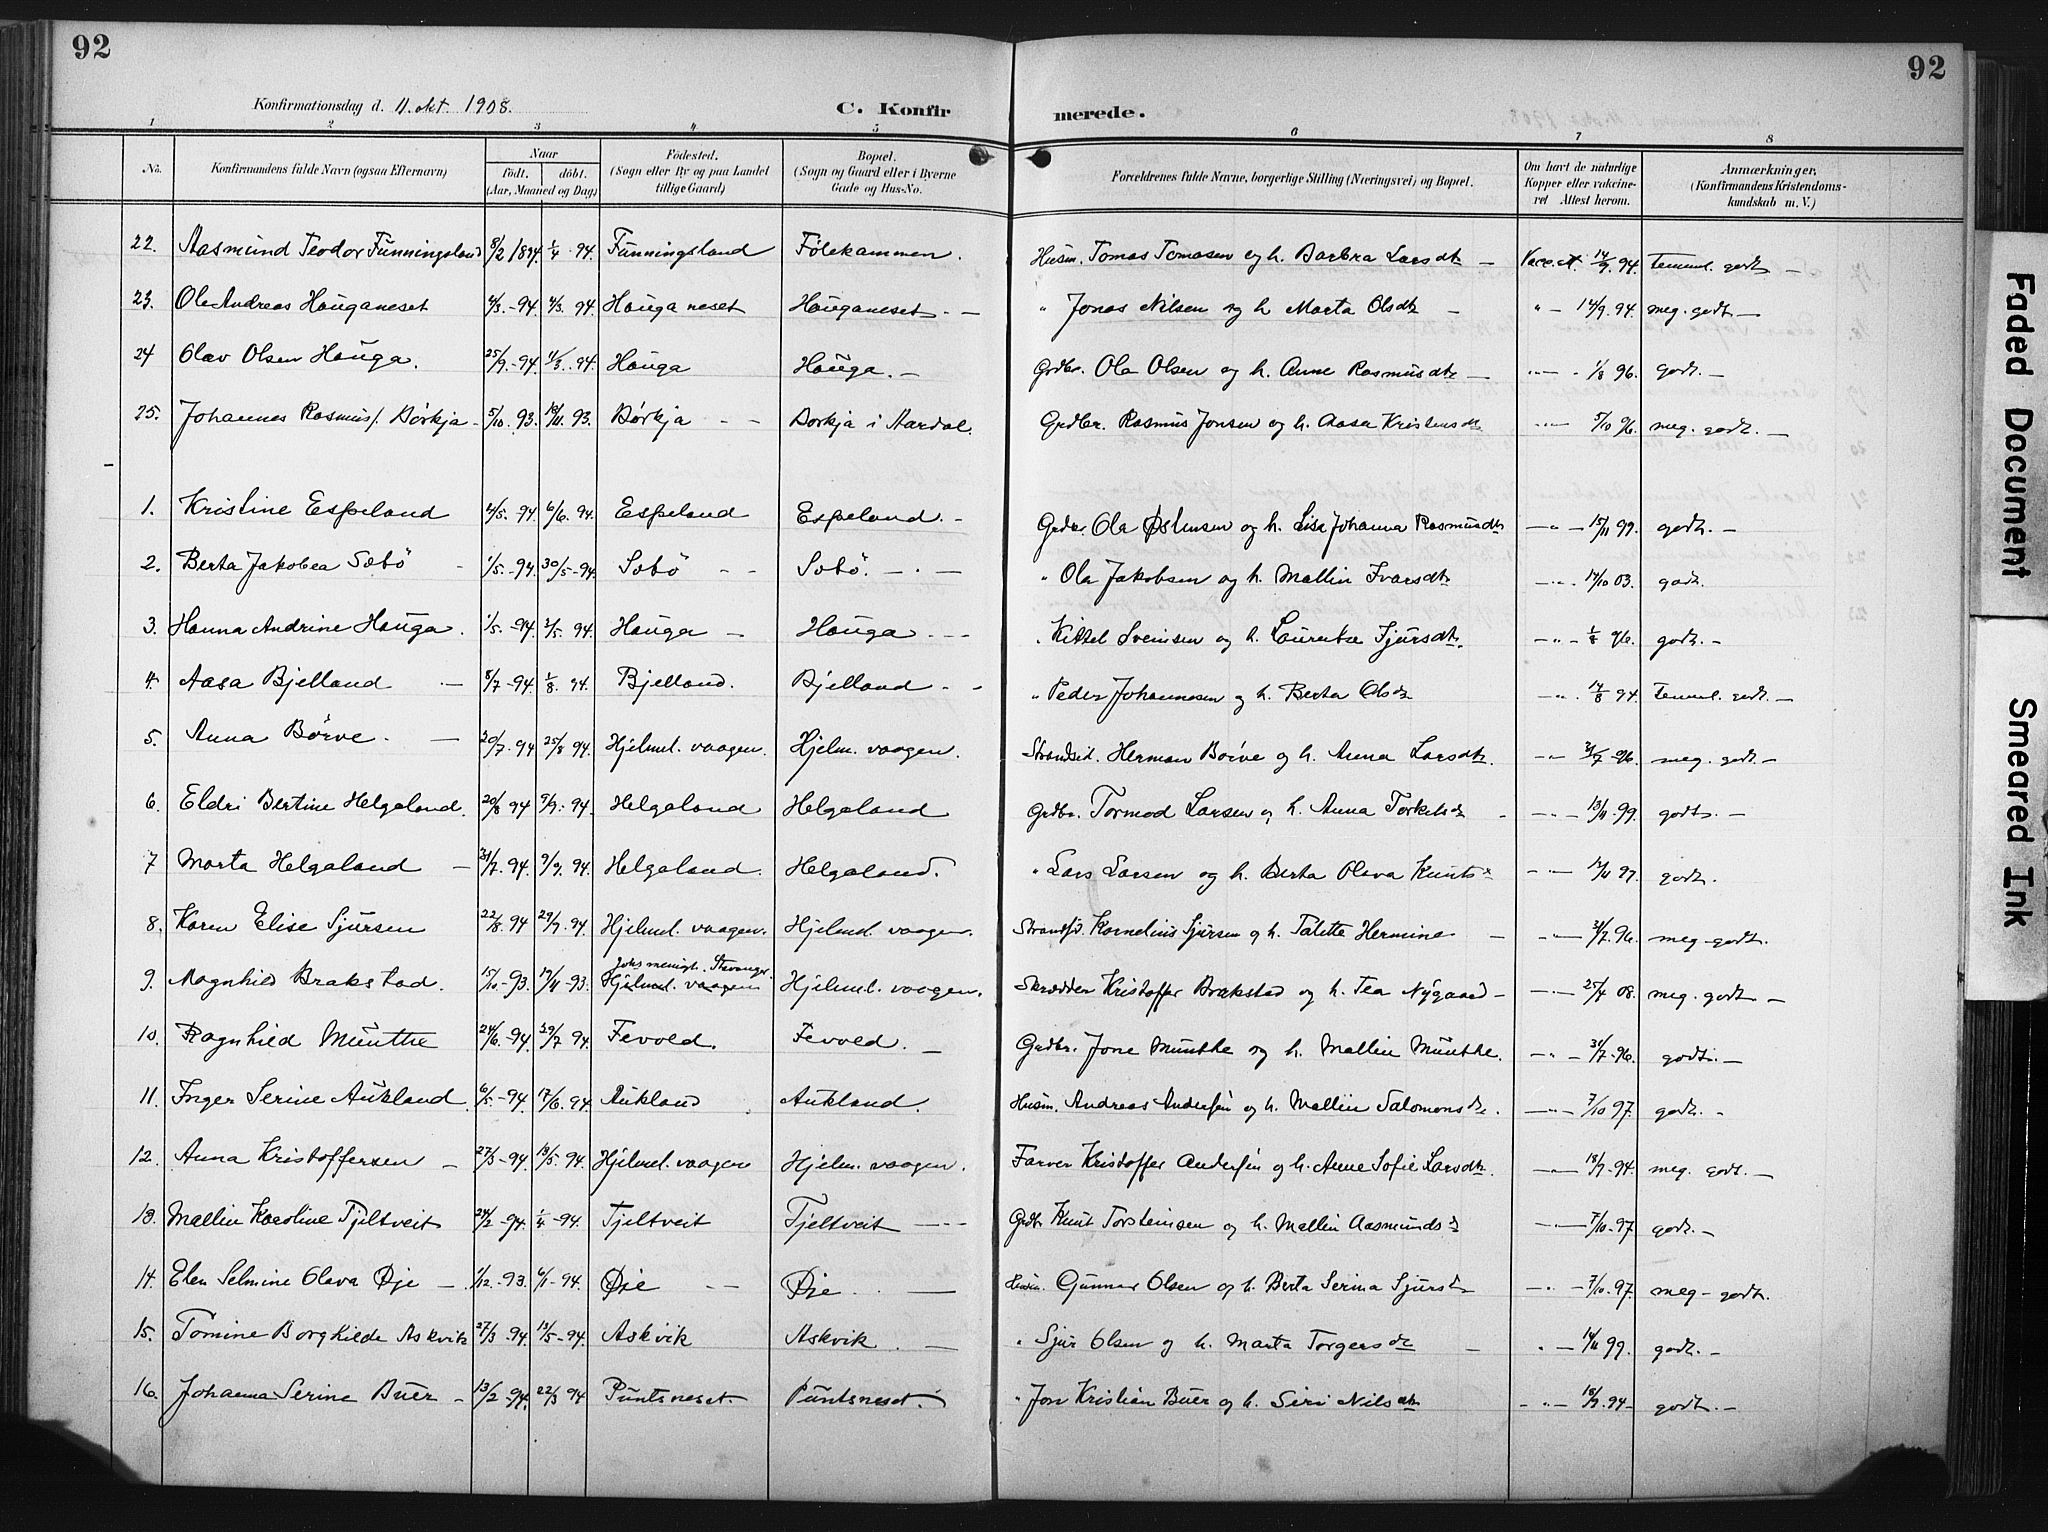 92
92
Konfirmationsdag d. 11. okt. 1908.
C. Konfirmerede.
1 2 3 4 5 6 7 8
No. Konfirmandens fulde Navn (ogsaa Efternavn) Naar født. døbt. (Aar, Maaned og Dag) Fødested. (Sogn eller By og paa Landet tillige Gaard) Bopæl. (Sogn og Gaard eller i Byerne Gade og Hus-No. Forældrenes fulde Navne, borgerlige Stilling (Næringsvei) og Bopæl. Om havt de naturlige Kopper eller vakcineret Attest herom. Anmærkninger, (Konfirmandens Kristendomskundskab m. V.)
22. Aasmund Teodor Funningsland 8/2 1894. 1/4 94. Funningsland Følekammen. Husm. Tomas Tomasen og h. Barbra Larsdtr. Vacc. at. 14/9. 94. temml. godt
23. Ole Andreas Hauganeset 94 94. Hauganeset Hauganeset " Jonas Nilsen og h. Marta Olsdtr " 14/9. 94. meg. godt
24 Olav Olsen Hauga. 25/9.-94. 94. Hauga Hauga. Grdbr. Ola Olsen og h. Anne Rasmusdtr 1/8 96. godt.
25. Johannes Rasmus/. Børkja 5/10. 93. 93. Børkja Børkja i Aardal. Grdbr. Rasmus Jonsen og h. Aasa Kristensdtr 5/10 96. meg. godt.
1. Kristine Espeland 94. 6/6. 94. Espeland Espeland. Grdbr. Ola Østensen og h. Lise Johanna Rasmusdtr " 15/11 99. godt.
2. Berta Jakobea Sæbö 1/5.-94. 30/5-94. Sæbö Sæbö. " Ola Jakobsen og h. Mallin Ivarsdtr 03. godt.
3. Hanna Andrine Hauga. 1/5.-94. 94. Hauga Hauga " Kittel Sveinsen og h. Laurentse Sjursdtr. 96. godt.
4. Aasa Bjelland 8/7-94. 1/8. 94. Bjelland. Bjelland " Peder Johannesen og h. Berta Olsdtr 94. temml. godt.
5. Anna Börve. 20/7. 94. 25/8 94. Hjelmel. vaagen. Hjelm. vaagen. Strandsid. Herman Börve og h. Anna Larsdtr. 31/7-96. meg. godt
6. Eldri Bertine Helgeland. 20/8 94 9/9. 94. Helgeland Helgeland Grdbr. Tormod Larsen og h. Anna Torkelsdtr 13/11-99. godt.
7 Marta Helgeland 31/7. 94. 9/9. 94. Helgeland. Helgeland. " Lars Larsen og h. Berta Oleva Knuts 97. godt.
8. Karen Elise Sjursen 22/8. 94 94. Hjelmel. vaagen. Hjelmel. vaagen. Strandsd. Kornelius Sjursen og h. Talette Hermine 31/7. 96. meg-godt.
9. Magnhild Brakstad. 15/10.-93. 19/11-93. Joh.s menigh. Stavanger Hjelmel. vaagen Hjelmel. vaagen. Skrædder Kristoffer Brakstad og h. Tea Nygaard 25/4 08. meg. godt
10. Ragnhild Munthe 24/6.-94. 29/7 94. Fevold. Fevold. Grdbr. Jone Munthe og h. Mallin Munthe. 31/7-96. godt.
11. Inger Serine Aukland 6/5.-94. 17/6. 94. Aukland Aukland. Husm. Andreas Andersen og h. Mallin Salomonsdtr. 7/10 97. godt.
12. Anna Kristoffersen 27/3-94. 13/5. 94. Hjelmel. vaagen Hjelm. vaagen. Farver Kristoffer Andersen og h. Anne Sofie Larsdtr. 18/9-94. meg. godt.
13. Mallin Karoline Tjeltveit 24/2-94. 1/4-94. Tjeltveit Tjeltveit Grdbr. Knut Torsteinsen og h. Mallin Aasmundsdtr 7/10-97. godt.
14. Elen Selmine Olava Øje 1/12.-93. 6/1-94. Øje Øje Husm. Gunnar Olsen og h. Berta Serina Sjursd 7/10. 97. meg-godt.
15. Tomine Borghilde Askvik 27/3-94. 13/5-94. Askvik Askvik " Sjur Olsen og h. Marta Torgersdtr 14/11 99. godt.
16. Johanna Serine Buer 13/2-94. 22/3 94 Puntsneset. Puntsneset. " Jon Kristian Buer og h. Siri Nilsdtr 18/9. 94 godt.
Faded Document
Smeared Ink